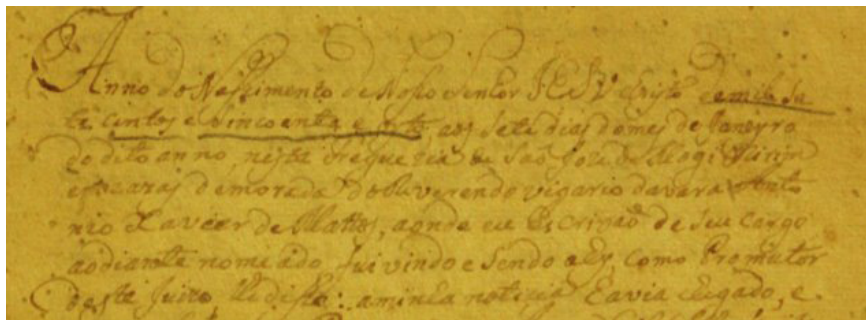 Anno do Nascimento de Nosso Senhor JESV Christo de mil Se
te centos e sincoenta e oito aos sete dias do mes de Janeyro
do dito anno, nesta freguezia de Sao Joze de Mogi Mirim
e cazas de morada do Reverendo vigario davara Anto
nio Xavier de Mattos, aonde eu Escrivaõ de seu cargo
ao diante nomeado fui vindo e sendo ahy como Promutor
deste Juizo lhe disse: aminha noticia havia chegado, e